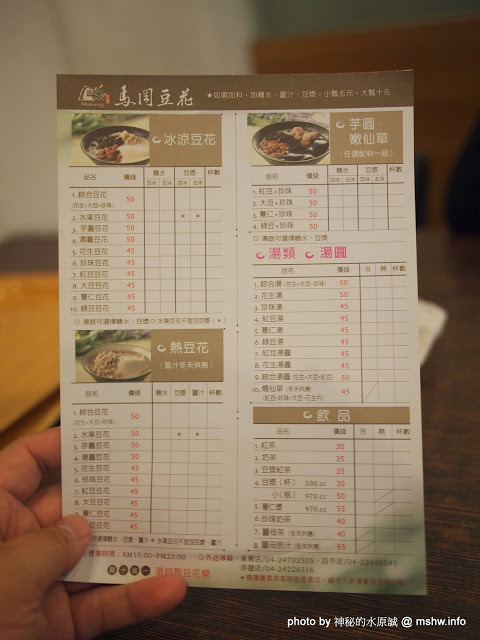 馬岡豆花
★如需加料,加糖水、薑汁、豆漿,小瓢五元,大瓢十元
冰涼豆花
品名 價錢 糖水 豆漿 杯數
加冰 去冰 加冰 去冰
1. 綜合豆花 50
(花生+大豆+珍珠)
2. 水果豆花 50 * *
3. 芋圓豆花 50
4. 湯圓豆花 50
5. 花生豆花 45
6. 珍珠豆花 45
7. 紅豆豆花 45
8. 大豆豆花 45
9. 薏仁豆花 45
10. 綠豆豆花 45
◎ 湯底可選擇糖水、豆漿 ◎ 水果豆花不宜加豆漿 ( * )
熱豆花
(薑汁冬天供應)
品名 價錢 糖水 豆漿 薑汁 杯數
1. 綜合豆花 50
(花豆+大豆+珍珠)
2. 水果豆花 45 * *
3. 芋圓豆花 50
4. 湯圓豆花 50
5. 花生豆花 45
6. 珍珠豆花 45
7. 紅豆豆花 45
8. 大豆豆花 45
9. 薏仁豆花
綠豆豆花
可選擇糖水、豆漿、薑汁 * 水果豆花不宜加豆漿、薑汁
營業時間:AM10:00~PM23:00
買十送一
芋圓
嫩仙草
(任選配料一組)
品名 價錢 糖水 豆漿 杯數
加冰 去冰 加冰 去冰
1. 紅豆+珍珠 50
2. 大豆+珍珠 50
3. 薏仁+珍珠 50
4. 綠豆+珍珠 50
◎ 湯底可選擇糖水、豆漿
湯類 湯圓
品名 價錢 冷 熱 杯數
1. 綜合湯(花生+大豆+珍珠) 50
2. 花生湯 50
3. 珍珠湯 45
4. 紅豆湯 45
5. 薏仁湯 45
6. 綠豆湯 45
7. 紅豆湯圓 45
8. 花生湯圓 45
9. 綜合湯圓(花生+大豆+紅豆) 50
10. 燒仙草(冬天供應) 45
(紅豆+珍珠+大豆+花生片)
飲品
品名 價錢 冷 熱 杯數
1. 紅茶 30
2. 奶茶 35
3. 豆漿紅茶 35
4. 豆漿(杯) 500.cc 30
小(瓶) 970.cc 50
5. 薏仁漿 970.cc 55
6. 珍珠奶茶 40
7. 薑母茶(冬天供應) 40
8. 薑母原汁(冬天供應) 65
◎外送專線:東興店/04-24732505、昌平店/04-22446541
崇德店/04-24226316
photo by 神秘的水原誠 @ mshw.info